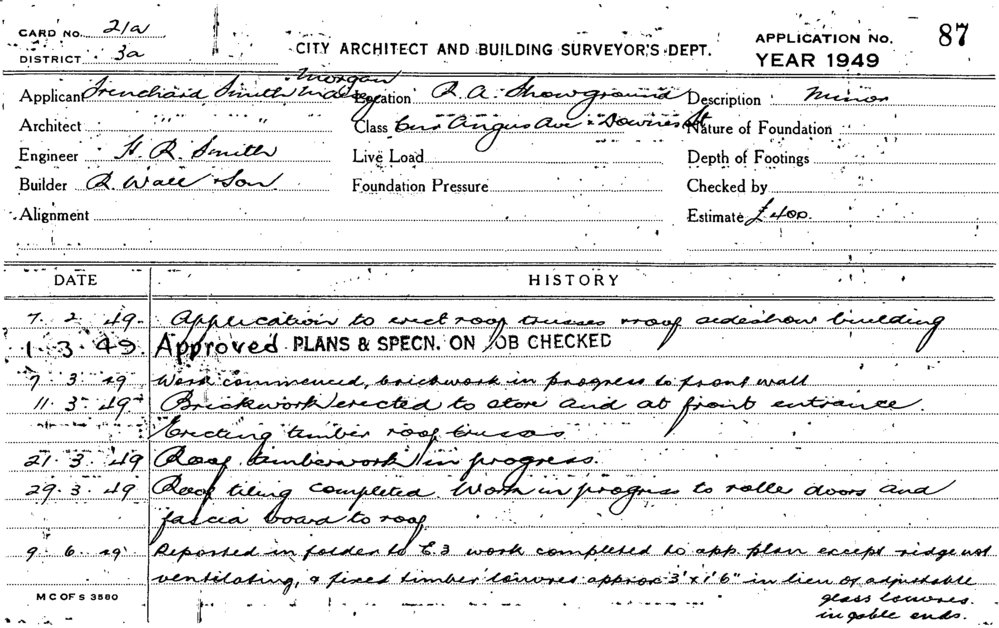 CARD NO. 21a
DISTRICT 3a
CITY ARCHITECT AND BUILDING SURVEYOR'S DEPT.
APPLICATION NO. 87
YEAR 1949
Applicant Trenchard Smith Maisey Morgan
Location R. A. Showground
Description Minor
Architect " " "
Class Cnr Angus Ave & Downes St
Nature of Foundation
Engineer H. R. Smith
Live Load
Depth of Footings
Builder R. Wall & Son
Foundation Pressure
Checked by
Alignment
Estimate £400.
DATE HISTORY
7. 2. 49. Application to erect roof trusses & roof sideshow building
1. 3. 49. Approved PLANS & SPECN. ON JOB CHECKED
7. 3. 49 Work commenced, brickwork in progress to front wall
11. 3. 49 Brickwork erected to store and at front entrance.
Erecting timber roof trusses
21. 3. 49 Roof timberwork in progress.
29. 3. 49 Roof tiling completed. Work in progress to roller doors and
fascia board to roof
9. 6. 49 Reported in folder to E.3 work completed to app. plan except ridge not
ventilating, & fixed timber louvres approx 3' x 1' 6" in lieu of adjustable
glass louvres.
in gable ends.
M C OF S 3580